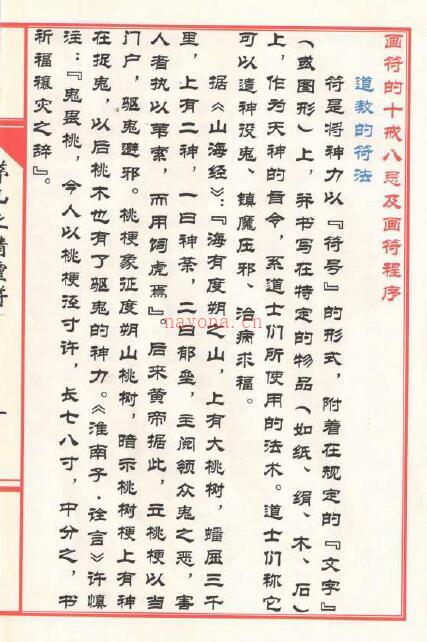 画符的十戒八忌及画符程序
道教的符法
符是将神力以『符号』的形式，附着在规定的『文字』
（或图形）上，并书写在特定的物品（如纸、绢、木、石）
上，作为天神的旨令，系道士们所使用的法术。道士们称它
可以遣神役鬼、镇魔压邪、治病求福。
据《山海经》：『海有度朔之山，上有大桃树，蟠屈三千
里，上有二神，一曰神荼，二曰郁垒，主阅领众鬼之恶，害
人者执以苇索，而用饲虎焉』后来黄帝据此，立桃梗以当
门户，驱鬼避邪。桃梗象征度朔山桃树，暗示桃梗上有神
在捉鬼，以后桃木也有了驱鬼的神力。《淮南子·诠言》许慎
注：『鬼畏桃，今人以桃梗径寸许，长七八寸，中分之，书
祈福禳灾之辞』。
nayona.cn